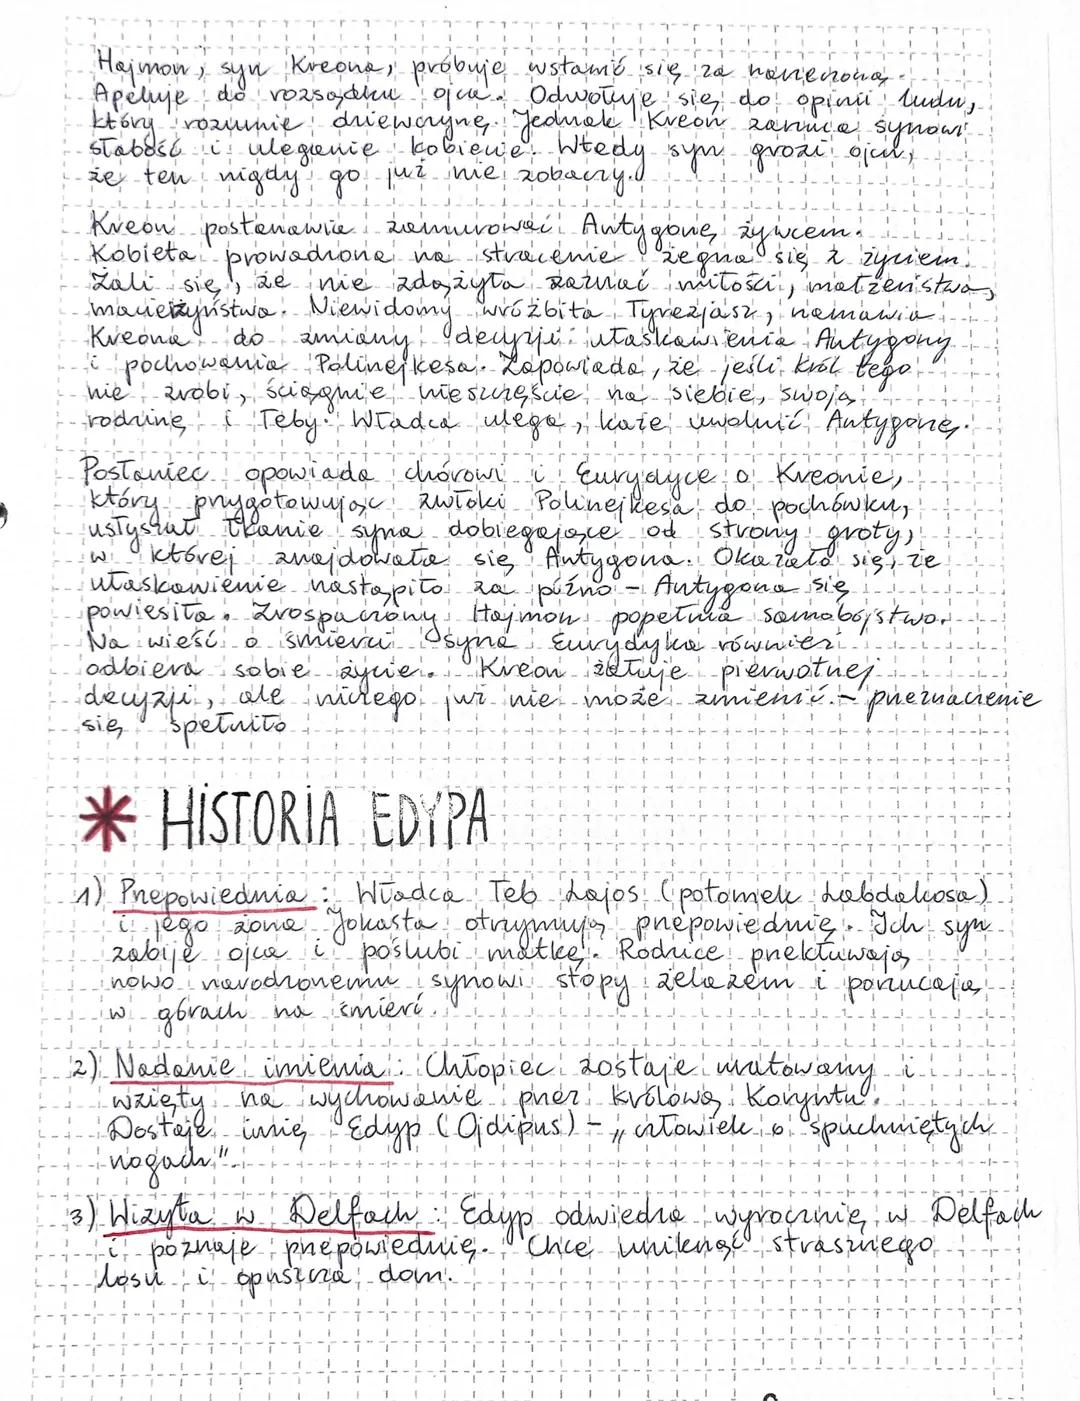 Hajmon, syn Kreona, próbuje wstawić się za narzeczoną.
Apeluje do rozsądku ojca. Odwołuje się do opinii ludu,
który rozumie dziewczynę. Jednak Kreon zarzuca synowi
słabość i uleganie kobiecie. Wtedy syn grozi ojcu,
że ten nigdy go już nie zobaczy.
Kreon postanawia zamurować Antygonę żywcem.
Kobieta prowadzona na stracenie żegna się z życiem.
Żali się, że nie zdążyła zaznać miłości, małżeństwa,
macierzyństwa. Niewidomy wróżbita Tyrezjasz, namawia
Kreona do zmiany decyzji: ułaskawienia Antygony
i pochowania Polinejkesa. Zapowiada, że jeśli król tego
nie zrobi, ściągnie nieszczęście na siebie, swoją
rodzinę i Teby. Władca ulega, każe uwolnić Antygonę.
Posłaniec opowiada chórowi i Eurydyce o Kreonie,
który przygotowując zwłoki Polinejkesa do pochówku,
usłyszał łkanie syna dobiegające od strony groty,
w której znajdowała się Antygona. Okazało się, że
ułaskawienie nastąpiło za późno – Antygona się
powiesiła. Zrozpaczony Hajmon popełnia samobójstwo.
Na wieść o śmierci syna Eurydyka również
odbiera sobie życie. Kreon żałuje pierwotnej
decyzji, ale niczego już nie może zmienić. – przeznaczenie
się spełniło
* HISTORIA EDYPA
1) Przepowiednia: Władca Teb Lajos (potomek Labdakosa)
i jego żona Jokasta otrzymują przepowiednię. Ich syn
zabije ojca i poślubi matkę. Rodzice przekłuwają
nowo narodzonemu synowi stopy żelazem i porzucają
w górach na śmierć.
2) Nadanie imienia: Chłopiec zostaje uratowany i
wzięty na wychowanie przez królową Koryntu.
Dostaje imię Edyp (Ojdipus) – „człowiek o spuchniętych
nogach".
3) Wizyta w Delfach: Edyp odwiedza wyrocznię w Delfach
i poznaje przepowiednię. Chce uniknąć strasznego
losu i opuszcza dom.